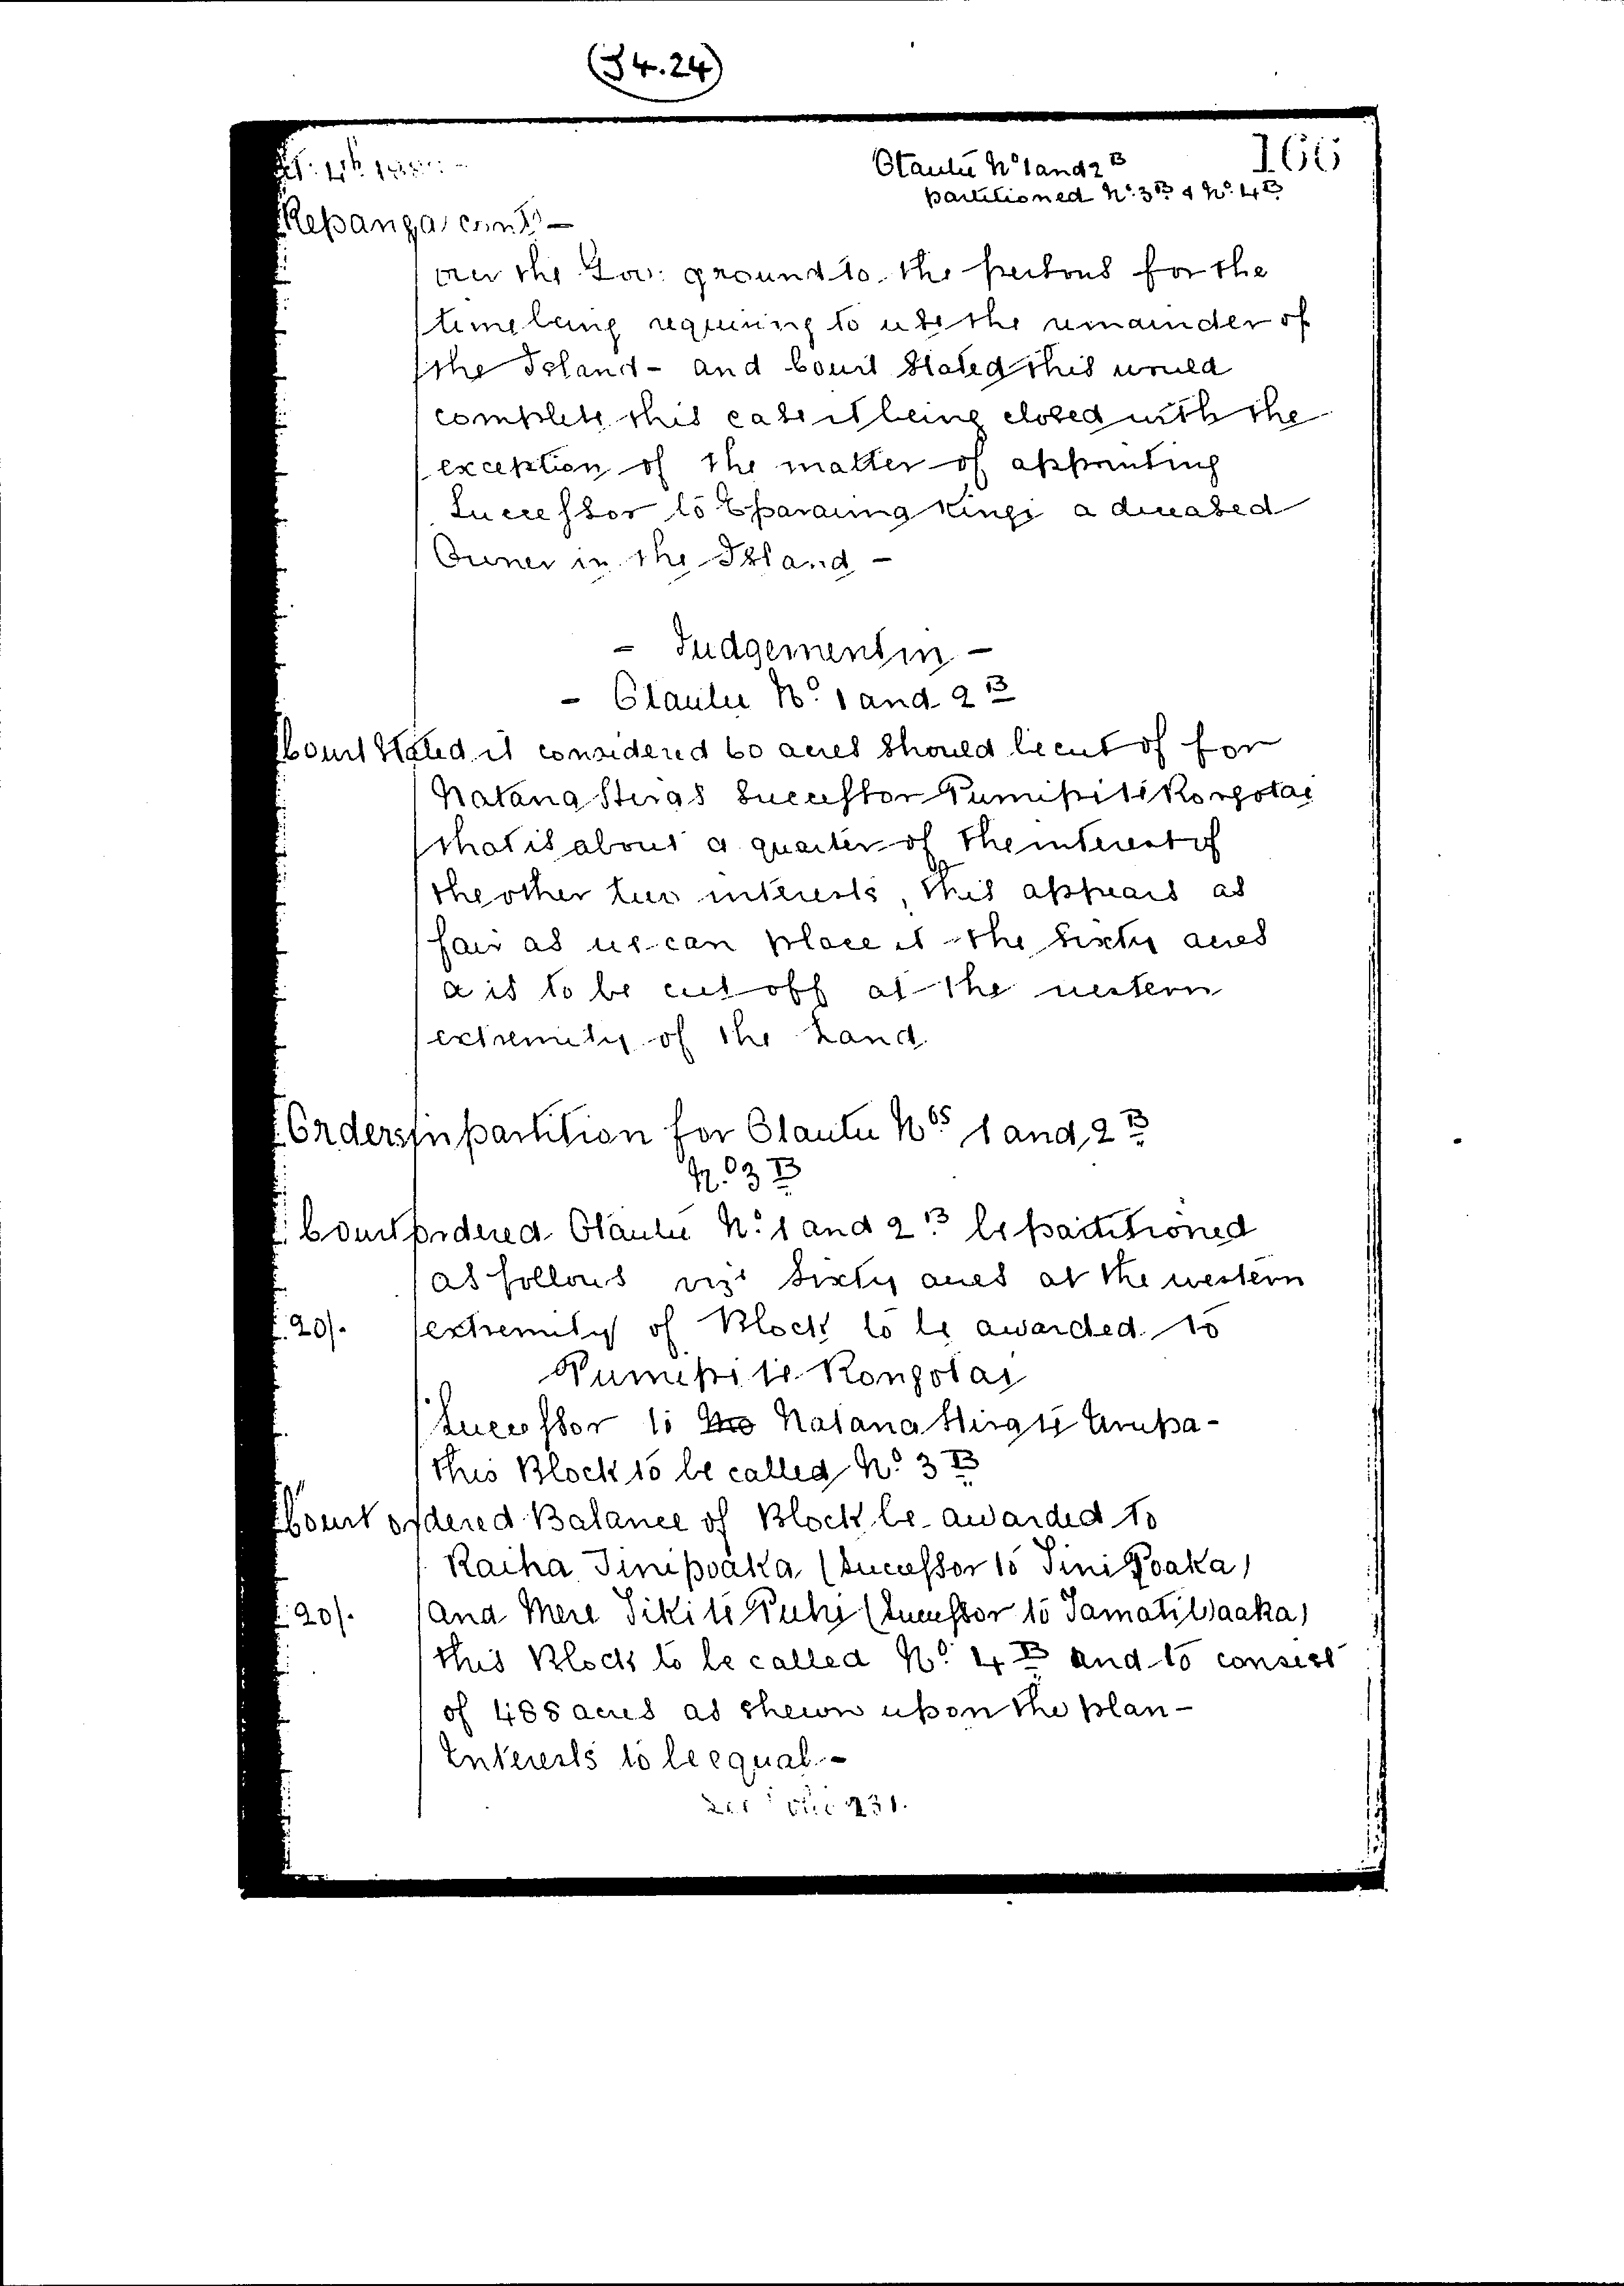 (J 4.24)
166
Otautu No 1 and 2 B
partitioned No. 3 B & No. 4 B
Repanga cont. -
over the Gov: ground to the persons for the
time being requiring to use the remainder of
the Island - and Court stated this would
complete this case it being closed with the
exception of the matter of appointing
Successor to Kingi a deceased
Owner in the Island -
- Judgement in -
- Otautu No. 1 and 2 B
Court Stated it considered 60 acres should be cut of for
Natana Successor Pumipiti Rongotai
that is about a quarter of the interest of
the other two interests, this appears as
fair as we can place it - the sixty acres
a is to be cut off at the western
extremity of the Land
Orders in partition for Otautu Nos 1 and 2 B
No. 3 B
Court ordered Otautu No. 1 and 2 B be partitioned
as follows viz sixty acres at the western
20/- extremity of Block to be awarded to
Pumipiti Rongotai
Successor to Natana
this Block to be called No. 3 B
Court ordered Balance of Block be awarded to
Raiha Tinipoaka (Successor to Tini Poaka)
20/- and Mere Tiki te Puhi (Successor to Tamati Waaka)
this Block to be called No. 4 B and to consist
of 488 acres as shewn upon the plan -
Interests to be equal. -